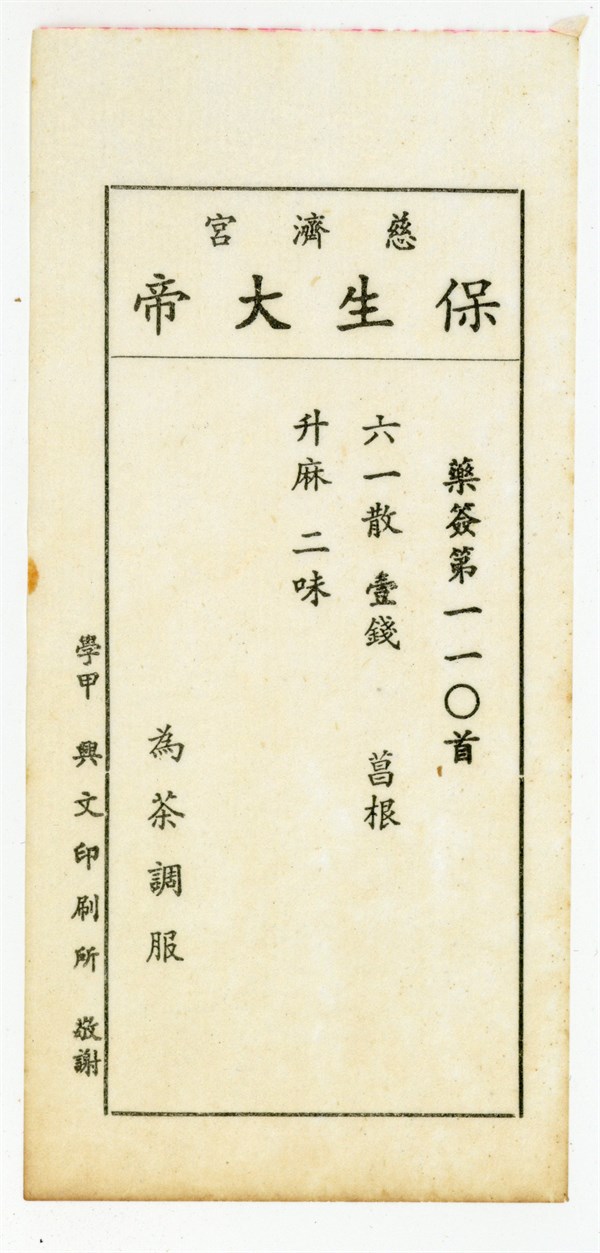 慈濟宮
保生大帝
藥簽第一一〇首
六一散 壹錢 菖根
升麻 二味
為茶調服
學甲 興文印刷所 敬謝